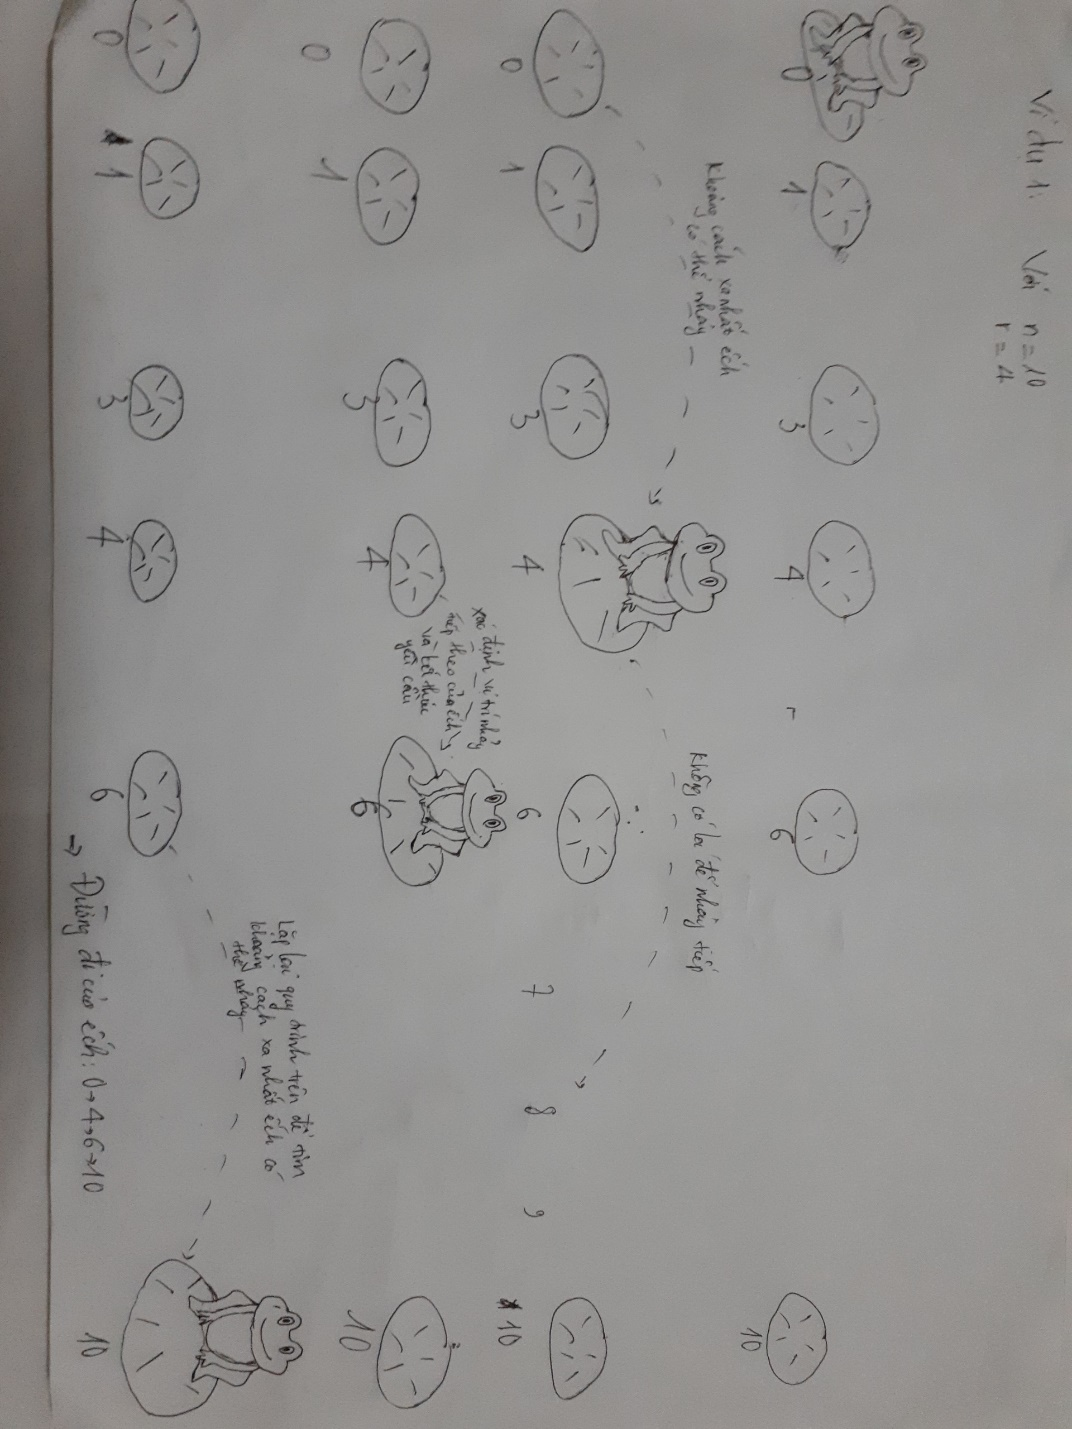 Ví dụ 1: Với n = 10
r = 4
0 1 3 4 6 10
Khoảng cách xa nhất ếch
có thể nhảy
Không có lá để nhảy tiếp
0 1 3 4 6 7 8 9 10
xác định vị trí nhảy
tiếp theo của ếch
và kết thúc
yêu cầu
0 1 3 4 6 10
Lặp lại quy trình trên để tìm
khoảng cách xa nhất ếch có
thể nhảy
0 1 3 4 6 10
→ Đường đi của ếch: 0→4→6→10